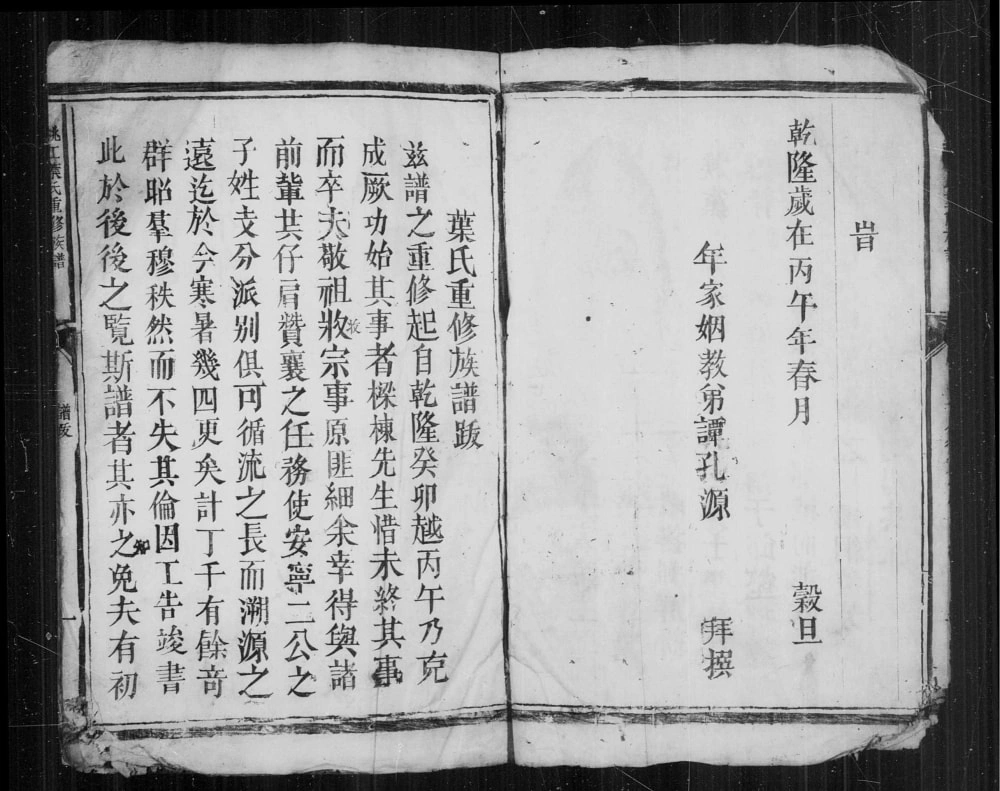 旹
乾隆歲在丙午年春月　穀旦
年家姻教弟譚孔源　拜撰
葉氏重修族譜跋
兹譜之重修起自乾隆癸卯越丙午乃克
成厥功始其事者樑棟先生惜未終其事
而卒夫敬祖收宗事原匪細余幸得與諸
前輩共仔肩贊襄之任務使安寧二公之
子姓支分派别俱可循流之長而溯源之
遠迄於今寒暑幾四更矣計丁千有餘竒
群昭羣穆秩然而不失其倫因工告竣書
此於後後之覽斯譜者其亦知之免夫有初
江葉氏重修族譜
譜跋
一